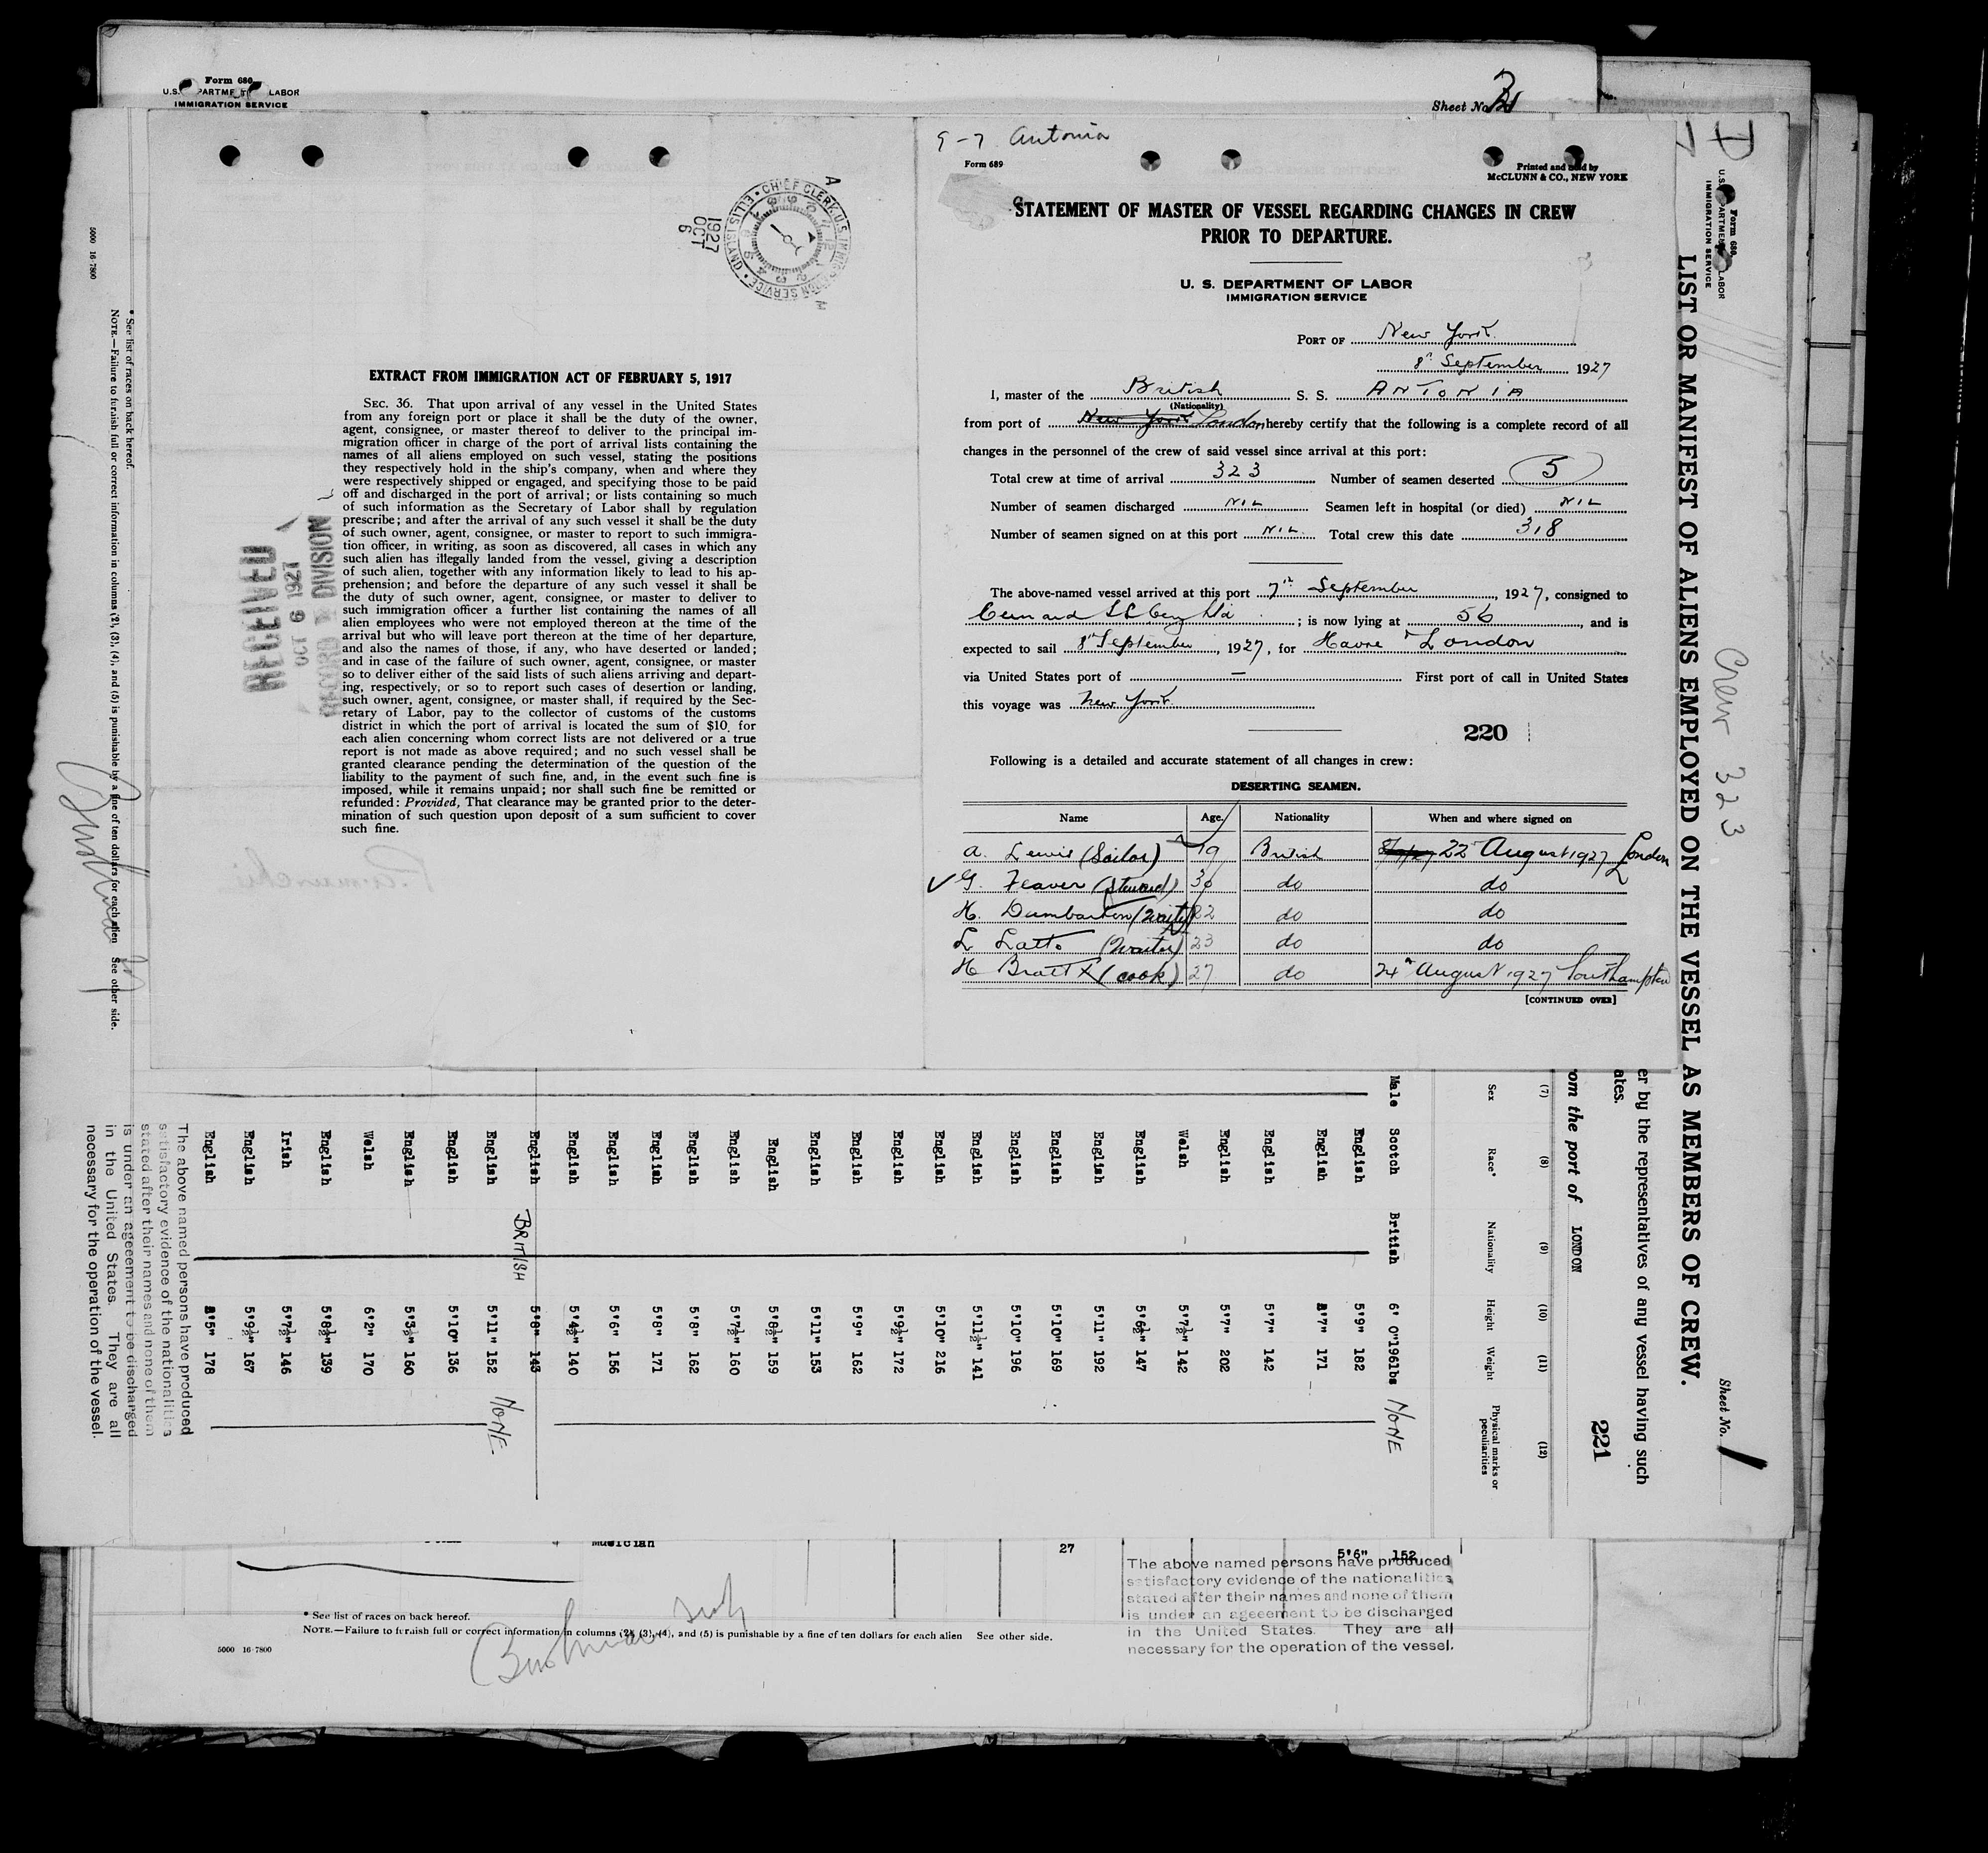 Form 680
U.S. DEPARTMENT LABOR
IMMIGRATION SERVICE
Sheet No.
CHIEF CLERK, U.S. IMMIGRATION SERVICE
ELLIS ISLAND
1927
OCT
6
EXTRACT FROM IMMIGRATION ACT OF FEBRUARY 5, 1917
SEC. 36. That upon arrival of any vessel in the United States
from any foreign port or place it shall be the duty of the owner,
agent, consignee, or master thereof to deliver to the principal im-
migration officer in charge of the port of arrival lists containing the
names of all aliens employed on such vessel, stating the positions
they respectively hold in the ship's company, when and where they
were respectively shipped or engaged, and specifying those to be paid
off and discharged in the port of arrival; or lists containing so much
of such information as the Secretary of Labor shall by regulation
prescribe; and after the arrival of any such vessel it shall be the duty
of such owner, agent, consignee, or master to report to such immigra-
tion officer, in writing, as soon as discovered, all cases in which any
such alien has illegally landed from the vessel, giving a description
of such alien, together with any information likely to lead to his ap-
prehension; and before the departure of any such vessel it shall be
the duty of such owner, agent, consignee, or master to deliver to
such immigration officer a further list containing the names of all
alien employees who were not employed thereon at the time of the
arrival but who will leave port thereon at the time of her departure,
and also the names of those, if any, who have deserted or landed;
and in case of the failure of such owner, agent, consignee, or master
so to deliver either of the said lists of such aliens arriving and depart-
ing, respectively; or so to report such cases of desertion or landing,
such owner, agent, consignee, or master shall, if required by the Sec-
retary of Labor, pay to the collector of customs of the customs
district in which the port of arrival is located the sum of $10 for
each alien concerning whom correct lists are not delivered or a true
report is not made as above required; and no such vessel shall be
granted clearance pending the determination of the question of the
liability to the payment of such fine, and, in the event such fine is
imposed, while it remains unpaid; nor shall such fine be remitted or
refunded: Provided, That clearance may be granted prior to the deter-
mination of such question upon deposit of a sum sufficient to cover
such fine.
RECEIVED
OCT 6 1927
RECORD DIVISION
9-7 Antonia
Form 689
Printed and sold by
McCLUNN & CO., NEW YORK
STATEMENT OF MASTER OF VESSEL REGARDING CHANGES IN CREW
PRIOR TO DEPARTURE.
U. S. DEPARTMENT OF LABOR
IMMIGRATION SERVICE
PORT OF New York
8th September 1927
I, master of the British S. S. ANTONIA
(Nationality)
from port of New York London hereby certify that the following is a complete record of all
changes in the personnel of the crew of said vessel since arrival at this port:
Total crew at time of arrival 323 Number of seamen deserted 5
Number of seamen discharged NIL Seamen left in hospital (or died) NIL
Number of seamen signed on at this port NIL Total crew this date 318
The above-named vessel arrived at this port 7th September, 1927, consigned to
Cunard SS Coy Ltd; is now lying at 56, and is
expected to sail 8th September, 1927, for Havre & London
via United States port of — First port of call in United States
this voyage was New York
220
Following is a detailed and accurate statement of all changes in crew:
DESERTING SEAMEN.
Name Age Nationality When and where signed on
A. Lewis (Sailor) 19 British 22nd August 1927 London
G. Feaver (Steward) 30 do do
H. Dumbarton (Waiter) 22 do do
L. Latto (Waiter) 23 do do
H Bratt (cook) 27 do 24th August 1927 Southampton
[CONTINUED OVER]
Form 680
U.S. DEPARTMENT LABOR
IMMIGRATION SERVICE
LIST OR MANIFEST OF ALIENS EMPLOYED ON THE VESSEL AS MEMBERS OF CREW.
Sheet No. 1
Crew 323
er by the representatives of any vessel having such
ates.
om the port of LONDON
221
(7) (8) (9) (10) (11) (12)
Sex Race* Nationality Height Weight Physical marks or peculiarities
Male Scotch British 6' 0" 196lbs NONE
English 5'9" 182
English 5'7" 171
English 5'7" 142
English 5'7" 202
Welsh 5'7½" 142
English 5'6½" 147
English 5'11" 192
English 5'10" 169
English 5'10" 196
English 5'11½" 141
English 5'10" 216
English 5'9½" 172
English 5'9" 162
English 5'11" 153
English 5'8½" 159
English 5'7½" 160
English 5'8" 162
English 5'8" 171
English 5'6" 156
English 5'4½" 140
English BRITISH 5'8" 143
English 5'11" 152 NONE
English 5'10" 136
English 5'3½" 160
Welsh 6'2" 170
English 5'8½" 139
Irish 5'7½" 146
English 5'9½" 167
English 5'5" 178
The above named persons have produced
satisfactory evidence of the nationalities
stated after their names and none of them
is under an ageeement to be discharged
in the United States. They are all
necessary for the operation of the vessel.
* See list of races on back hereof.
NOTE.—Failure to furnish full or correct information in columns (2), (3), (4), and (5) is punishable by a fine of ten dollars for each alien See other side.
5000 16-7800
Musician 27 5'6" 152
The above named persons have produced
satisfactory evidence of the nationalities
stated after their names and none of them
is under an ageeement to be discharged
in the United States. They are all
necessary for the operation of the vessel.
* See list of races on back hereof.
NOTE.—Failure to furnish full or correct information in columns (2), (3), (4), and (5) is punishable by a fine of ten dollars for each alien See other side.
5000 16-7800